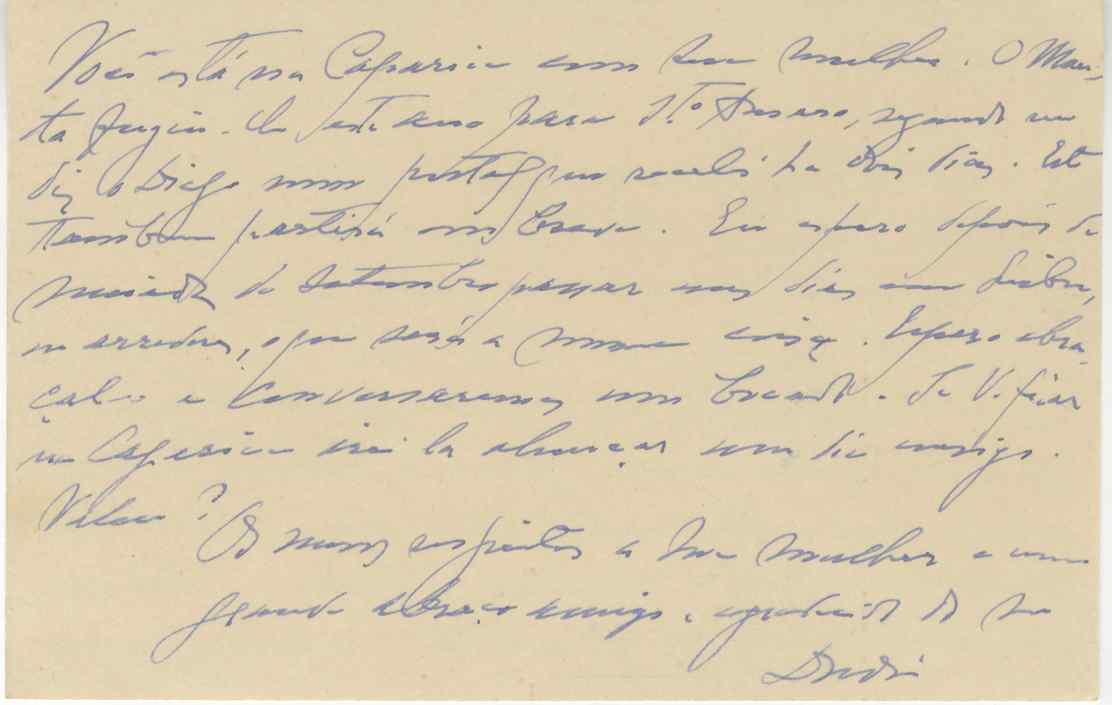 Você está na Caparica com sua mulher. O Mau-
ta fugiu este ano para Sto Amaro, segundo me
diz o Diogo num postal que recebi ha dois dias. Este
tambem partirá em breve. Eu espero depois de
meado de Setembro passar uns dias em Lisboa,
ou arredores, o que será a mesma coisa. Espero abra-
çal-o e conversaremos um bocado. Se V. ficar
na Caparica irei lá almoçar um dia consigo.
Valeu?
Os meus respeitos a sua mulher e um
grande abraço amigo e agradecido do seu